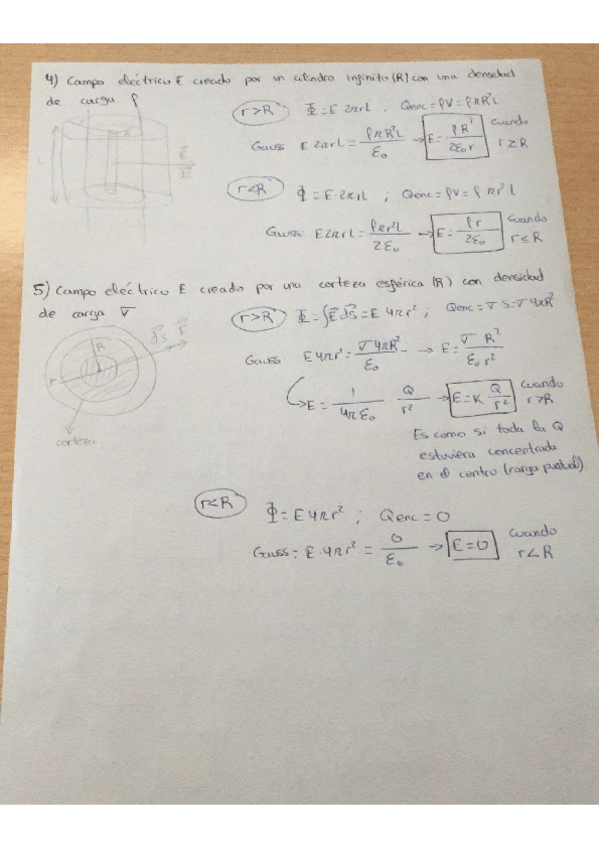 4) Campo eléctrico E creado por un cilindro infinito (R) con una densidad
de carga ρ
r>R Φ = E 2πrL . Qenc = ρV = ρπR²L
Gauss E 2πrL = ρπR²L / ε₀ → E = ρR² / 2ε₀r cuando r≥R
L E dS
r<R Φ = E 2πrL ; Qenc = ρV = ρπr²L
Gauss: E2πrL = ρπr²L / 2ε₀ → E = ρr / 2ε₀ cuando r≤R
5) Campo eléctrico E creado por una corteza esférica (R) con densidad
de carga σ
r>R Φ = ∫E dS = E 4πr² ; Qenc = σ S = σ 4πR²
dS E
R
r
corteza
Gauss E 4πr² = σ 4πR² / ε₀ → E = σ R² / ε₀ r²
↳ E = 1 / 4πε₀ Q / r² → E = K Q / r² cuando r>R
Es como si toda la Q
estuviera concentrada
en el centro (carga puntual)
r<R Φ = E 4πr² ; Qenc = 0
Gauss = E 4πr² = 0 / ε₀ → E=0 cuando r<R